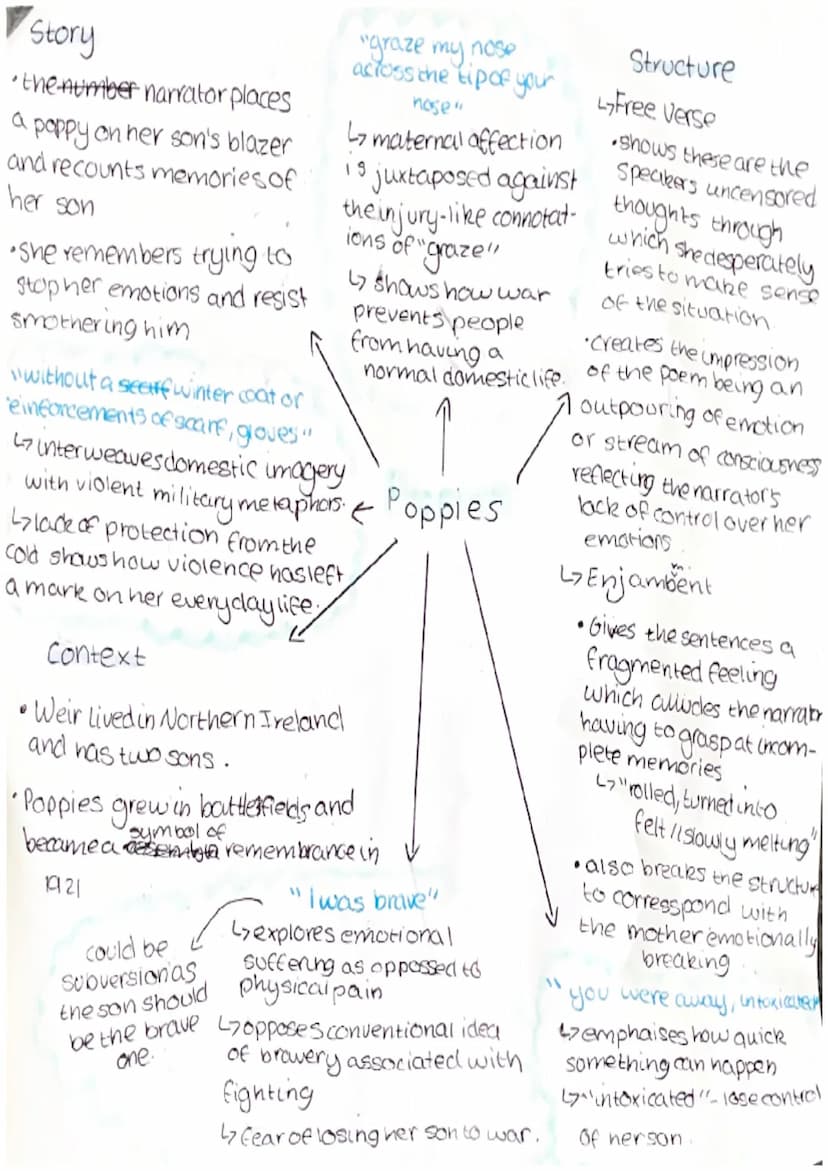 Story
• the number narrator places
a poppy on her son's blazer
and recounts memories of
her son
• she remembers trying to
stop her emotions and resist
smothering him
"graze my nose
across the tip of your
nose"
↳ maternal affection
is juxtaposed against
the injury-like connotat-
ions of "graze"
↳ shows how war
prevents people
from having a
normal domestic life.
Structure
↳ Free verse
• shows these are the
speakers uncensored
thoughts through
which she desperately
tries to make sense
of the situation
• creates the impression
of the poem being an
outpouring of emotion
or stream of consciousness
reflecting the narrator's
lack of control over her
emotions.
↳ Enjambment
• Gives the sentences a
fragmented feeling
which alludes the narrator
having to grasp at incom-
plete memories
↳ "rolled, turned into
felt // slowly melting"
• also breaks the structure
to correspsond with
the mother emotionally
breaking
"without a scarf winter coat or
reinforcements of scarf, gloves"
↳ interweaves domestic imagery
with violent military metaphors.
↳ lack of protection from the
cold shows how violence has left
a mark on her everyday life.
Poppies
Context
• Weir lived in Northern Ireland
and has two sons.
• Poppies grew in battlefields and
symbol of
became a remembrance in
1921
"I was brave"
↳ explores emotional
suffering as oppossed to
physical pain
↳ opposes conventional idea
of bravery associated with
fighting
↳ fear of losing her son to war.
could be
subversion as
the son should
be the brave
one.
"you were away, intoxicated"
↳ emphaises how quick
something can happen
↳ "intoxicated" - lose control
of her son.